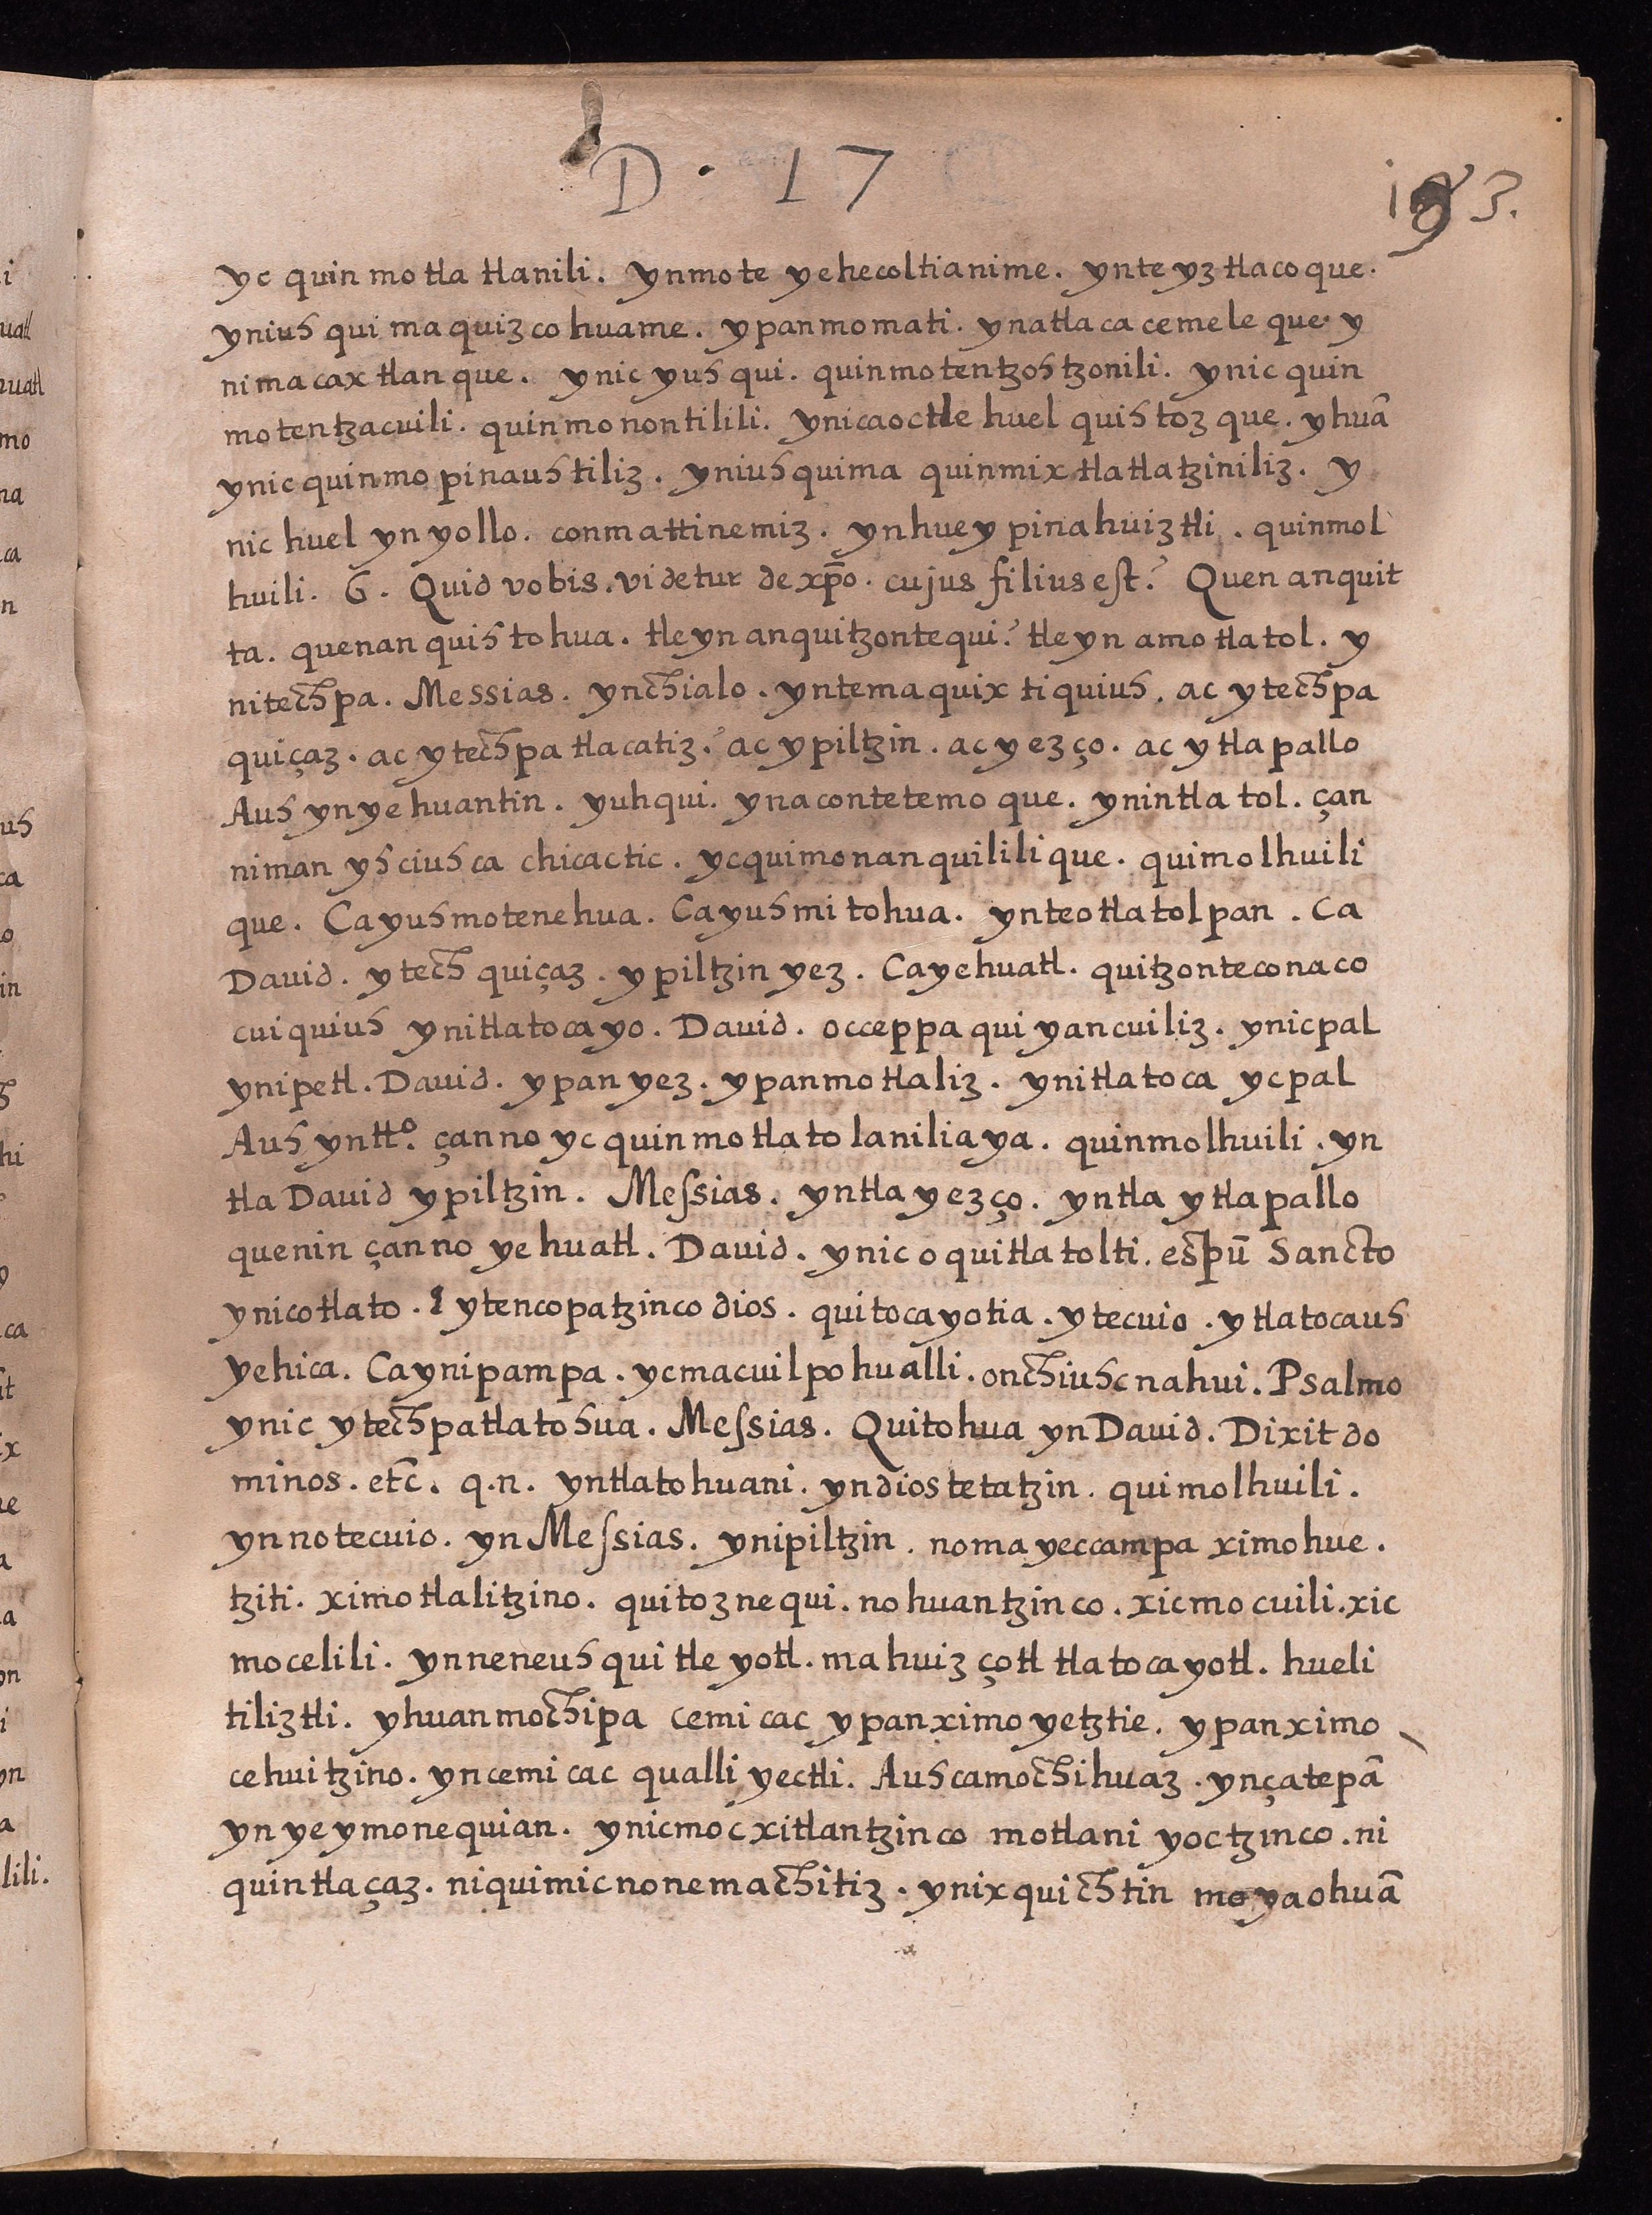 D. 17
193.
yc quin motla tlanili. ynmote yehecoltianime. ynte yztlacoque.
yniuh qui ma quizcohuame. ypanmomati. ynatlaca cemele que. y
nimacaxtlanque. ynic yuh qui. quinmotentzohtzonili. ynic quin
motentzacuili. quinmonontilili. ynicaoctle huel quihtozque. yhuā
ynic quinmopinauhtiliz. yniuhquima quinmixtlatlatziniliz. y
nic huel ynyollo. conmattinemiz. ynhuey pinahuiztli. quinmol
huili. G. Quid vobis. videtur de xp̄o. cujus filius est? Quen anquit
ta. quenan quihtohua. tleyn anquitzontequi? tleyn amotlatol. y
nitechpa. Messias. ynchialo. yntemaquixtiquiuh. ac ytechpa
quiçaz. ac ytechpa tlacatiz? ac ypiltzin. ac yezço. ac ytlapallo
Auh ynyehuantin. yuhqui. ynacontetemoque. ynintlatol. çan
niman yhciuhca chicactic. ycquimonanquililique. quimolhuili
que. Cayuhmotenehua. Cayuhmitohua. ynteotlatolpan. Ca
Dauid. ytech quiçaz. ypiltzin yez. Cayehuatl. quitzonteconaco
cuiquiuh ynitlatocayo. Dauid. occeppa quiyancuiliz. ynicpal
ynipetl. Dauid. ypan yez. ypanmotlaliz. ynitlatoca ycpal
Auh yntt̊. çanno yc quinmotlatolaniliaya. quinmolhuili. yn
tla Dauid ypiltzin. Messias. yntla yezço. yntla ytlapallo
quenin çanno yehuatl. Dauid. ynic oquitlatolti. espū Sancto
ynicotlato. ytencopatzinco dios. quitocayotia. ytecuio. ytlatocauh
yehica. Caynipampa. ycmacuilpohualli. onchiuhcnahui. Psalmo
ynic ytechpatlatohua. Messias. Quitohua yn Dauid. Dixit do
minos. etc̄. q.n. yntlatohuani. yndios tetatzin. quimolhuili.
ynnotecuio. yn Messias. ynipiltzin. nomayeccampa ximohue.
tziti. ximotlalitzino. quitoznequi. nohuantzinco. xicmocuili. xic
mocelili. ynneneuhqui tleyotl. mahuizçotl tlatocayotl. hueli
tiliztli. yhuan mochipa cemicac ypanximoyetztie. ypanximo
cehuitzino. yncemicac qualli yectli. Auhcamochihuaz. ynçatepā
yn yeymonequian. ynicmocxitlantzinco motlani yoctzinco. ni
quintlaçaz. niquimicnonemachitiz. ynixquichtin moyaohuā